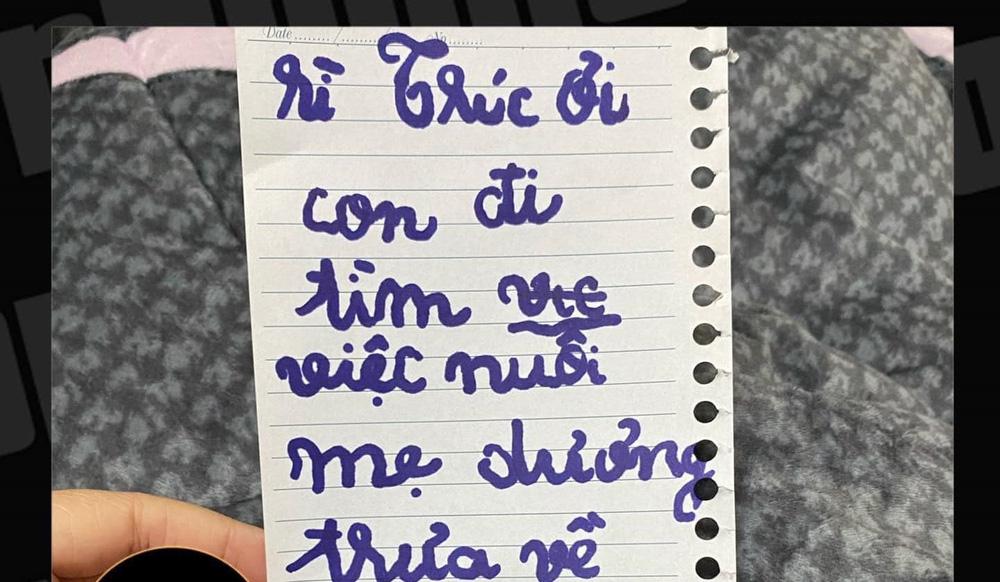 Date....../....../ No.......
rì Trúc ơi
con đi
tìm
việc nuôi
mẹ dương
trưa về